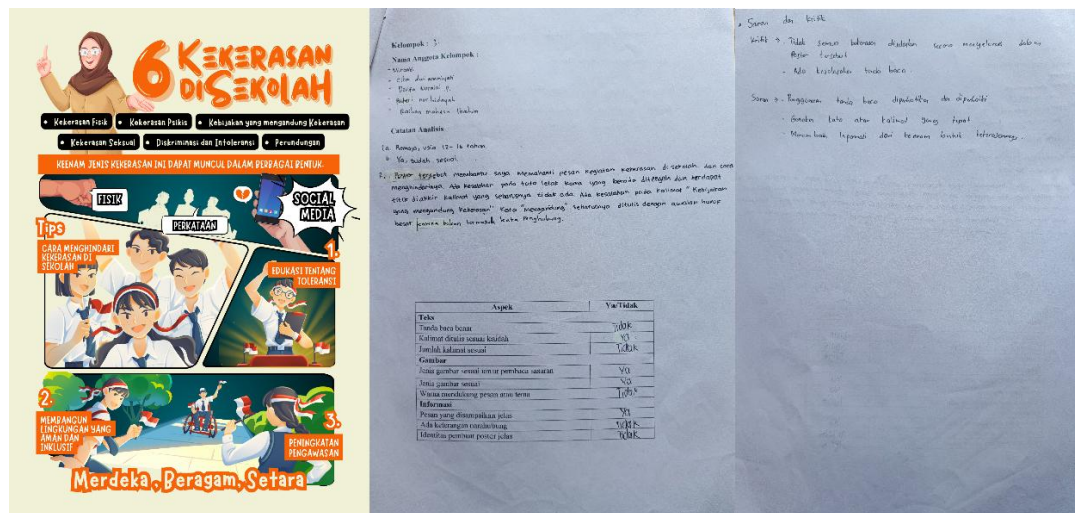 6 KEKERASAN
DI SEKOLAH
• Kekerasan Fisik • Kekerasan Psikis • Kebijakan yang mengandung Kekerasan
• Kekerasan Seksual • Diskriminasi dan Intoleransi • Perundungan
KEENAM JENIS KEKERASAN INI DAPAT MUNCUL DALAM BERBAGAI BENTUK.
FISIK
PERKATAAN
SOCIAL
MEDIA
Tips
CARA MENGHINDARI
KEKERASAN DI
SEKOLAH
1.
EDUKASI TENTANG
TOLERANSI
2.
MEMBANGUN
LINGKUNGAN YANG
AMAN DAN
INKLUSIF
3.
PENINGKATAN
PENGAWASAN
Merdeka, Beragam, Setara
Kelompok : 3.
Nama Anggota Kelompok :
Catatan Analisis
1a. Remaja, usia 12-16 tahun
b. Ya, sudah sesuai.
2. Poster tersebut membantu saya memahami pesan kegiatan kekerasan di sekolah dan cara
menghindarinya. Ada kesalahan pada tata letak koma yang berada ditengah dan terdapat
titik diakhir kalimat yang seharusnya tidak ada. Ada kesalahan pada kalimat "Kebijakan
yang mengandung kekerasan" kata "mengandung" seharusnya ditulis dengan awalan huruf
besar karena bukan termasuk kata penghubung.
Aspek Ya/Tidak
Teks
Tanda baca benar Tidak
Kalimat ditulis sesuai kaidah Ya
Jumlah kalimat sesuai Tidak
Gambar
Jenis gambar sesuai umur pembaca sasaran Ya
Jenis gambar sesuai Ya
Warna mendukung pesan atau tema
Informasi
Pesan yang disampaikan jelas Ya
Ada keterangan narahubung Tidak
Identitas pembuat poster jelas Tidak
• Saran dan kritik
Kritik → Tidak semua bahasan dijelaskan secara menyeluruh dalam
Poster tersebut
- Ada kesalahan tanda baca.
Saran → - Penggunaan tanda baca diperhatikan dan diperbaiki
- Gunakan kata atau kalimat yang tepat
- informasi dari keenam bentuk kekerasan